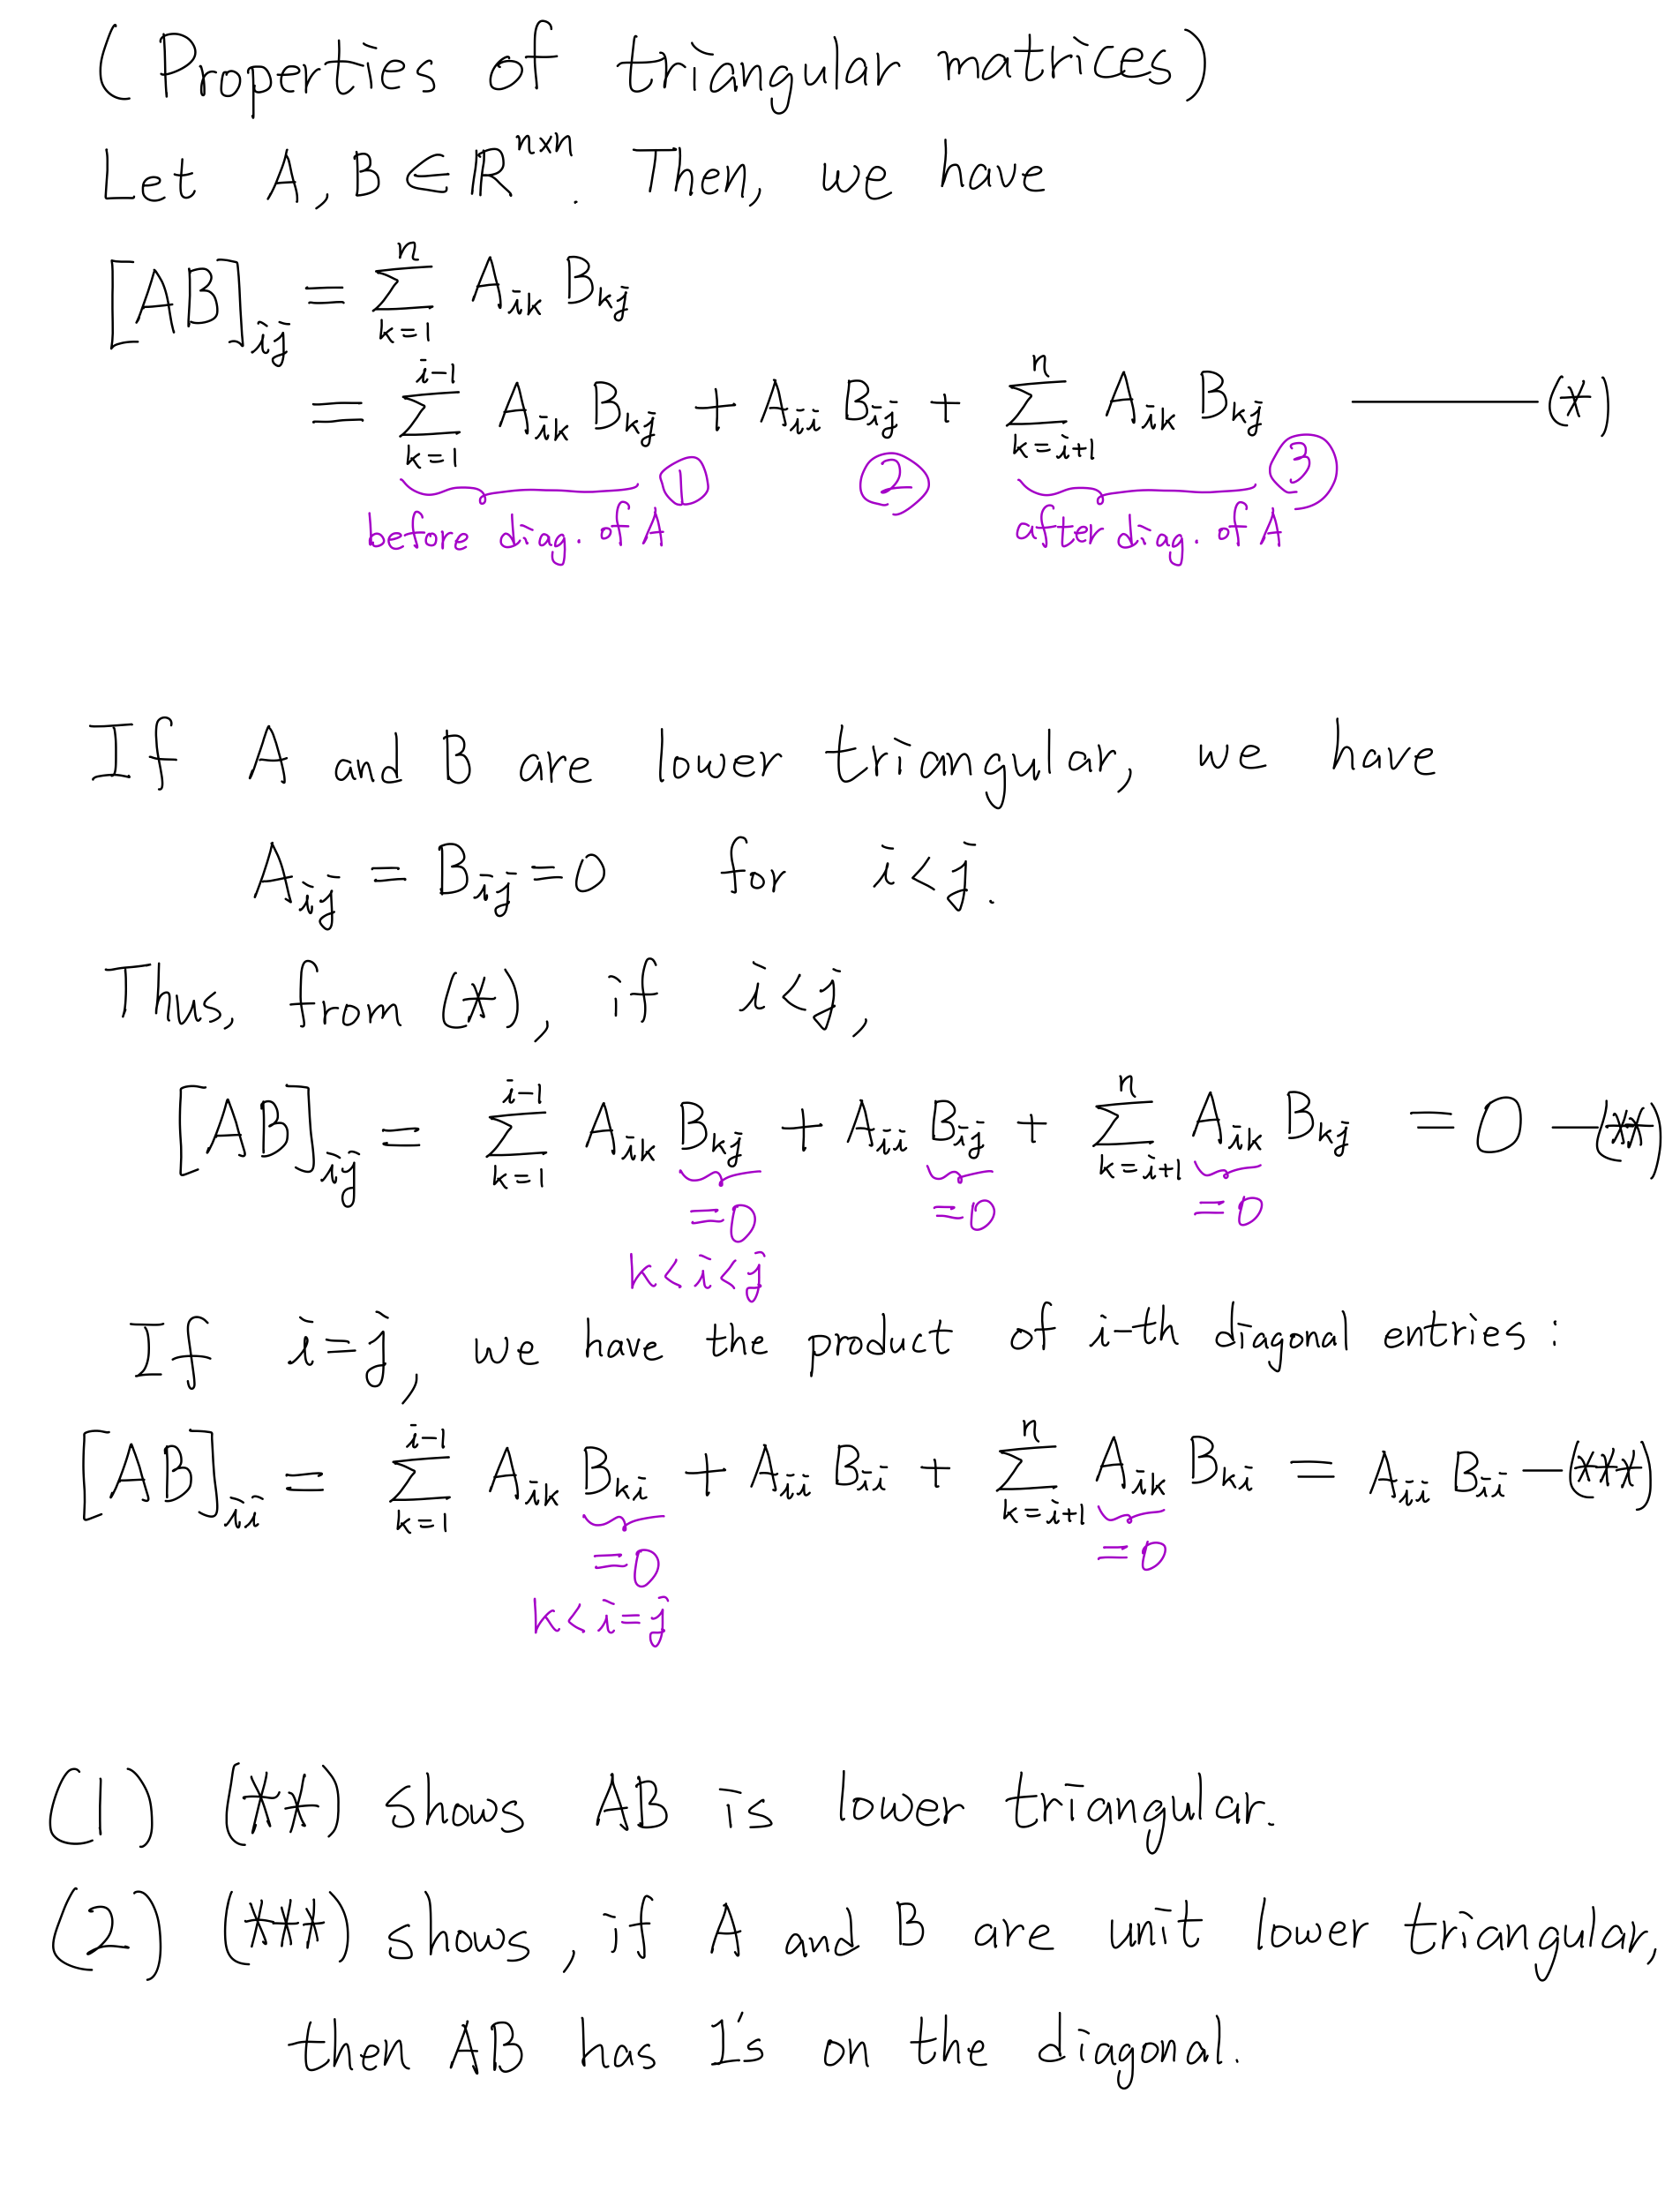 (Properties of triangular matrices)
Let A, B ∈ ℝ^{n×n}. Then, we have
[AB]_{ij} = \sum_{k=1}^{n} A_{ik} B_{kj}
= \sum_{k=1}^{i-1} A_{ik} B_{kj} + A_{ii} B_{ij} + \sum_{k=i+1}^{n} A_{ik} B_{kj} —— (*)
① ② ③
before diag. of A after diag. of A
If A and B are lower triangular, we have
A_{ij} = B_{ij} = 0 for i < j.
Thus, from (*), if i < j,
[AB]_{ij} = \sum_{k=1}^{i-1} A_{ik} B_{kj} + A_{ii} B_{ij} + \sum_{k=i+1}^{n} A_{ik} B_{kj} = 0 — (**)
=0 =0 =0
k < i < j
If i = j, we have the product of i-th diagonal entries :
[AB]_{ii} = \sum_{k=1}^{i-1} A_{ik} B_{ki} + A_{ii} B_{ii} + \sum_{k=i+1}^{n} A_{ik} B_{ki} = A_{ii} B_{ii} — (***)
=0 =0
k < i = j
(1) (**) shows AB is lower triangular.
(2) (***) shows, if A and B are unit lower triangular,
then AB has 1's on the diagonal.